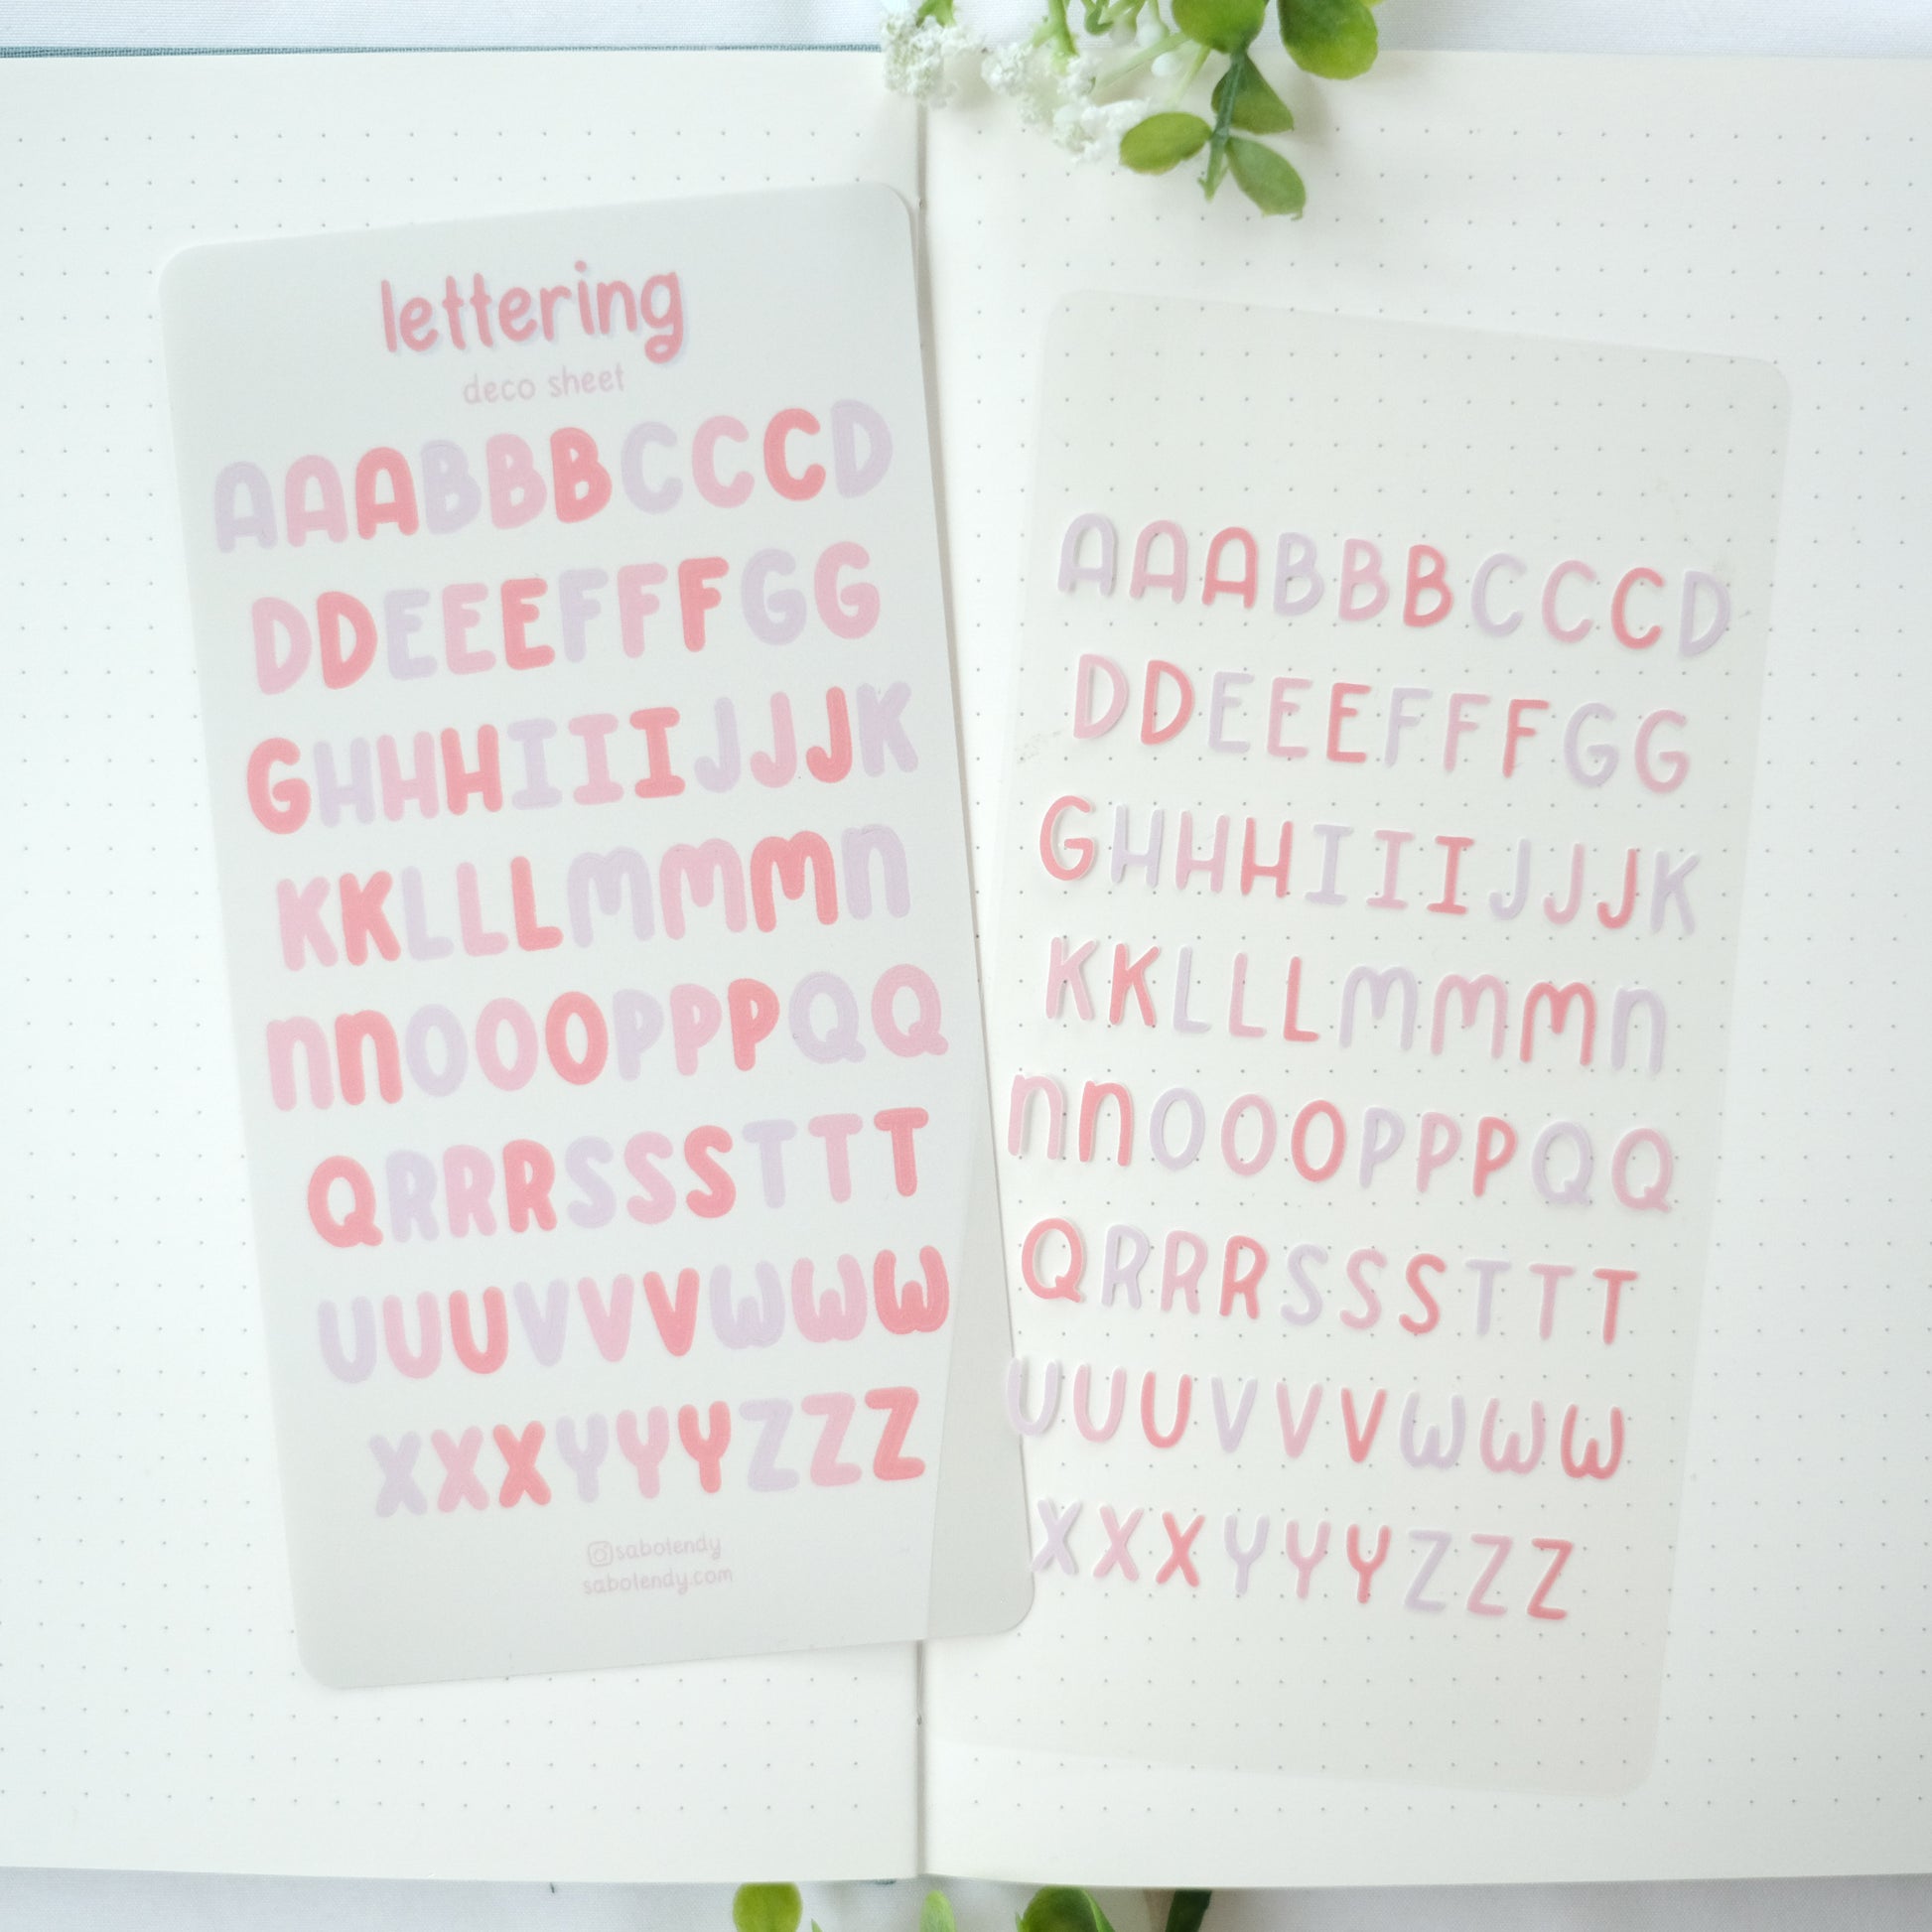 lettering
deco sheet
AAABBBCCCD
DDEEEFFFGG
GHHHIIIJJJK
KKLLLMMMn
nnOOOPPPQQ
QRRRSSSTTT
UUUVVVWWW
XXXYYYZZZ
sabolendy
sabolendy.com
AAABBBCCCD
DDEEEFFFGG
GHHHIIIJJJK
KKLLLMMMn
nnOOOPPPQQ
QRRRSSSTTT
UUUVVVWWW
XXXYYYZZZ